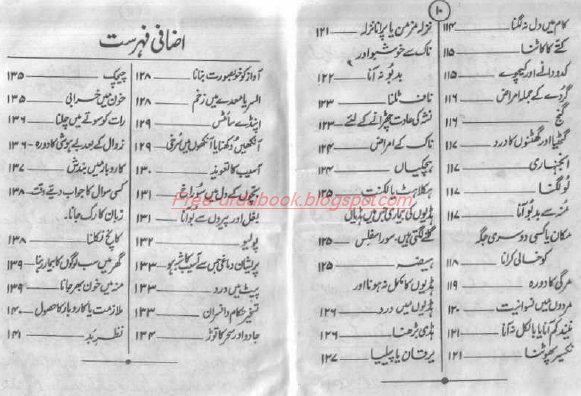 ۱۰
کام میں دل نہ لگنا ۱۱۴
کتے کا کاٹنا ۱۱۵
کدو دانے اور کیچوے ۱۱۵
گردے کے جملہ امراض ۱۱۶
گنج ۱۱۶
گنٹھیا اور گھٹنوں کا درد ۱۱۷
انجہاری ۱۱۷
لو لگنا ۱۱۷
منہ سے بدبو آنا ۱۱۷
مکان یا کسی دوسری جگہ
کو خالی کرانا ۱۱۸
مرگی کا دورہ ۱۱۹
مردوں میں نسوانیت ۱۲۰
نیند کم آنا یا بالکل نہ آنا ۱۲۱
نکسیر پھوٹنا ۱۲۱
نزلہ مزمن یا پرانا نزلہ ۱۲۱
ناک سے خوشبو اور
بدبو نہ آنا ۱۲۲
ناف ٹلنا ۱۲۳
نشہ کی عادت چھڑانے کے لئے ۱۲۳
ناک کے امراض ۱۲۴
ہچکیاں ۱۲۴
ہکلاہٹ یا لکنت ۱۲۵
ہڈیوں کی بیماری جس میں ہڈیاں
گلنے لگتی ہیں، سورا سفلس ۱۲۵
ہیضہ ۱۲۵
ہڈیوں کا مکمل نہ ہونا اور
ہڈیوں میں درد ۱۲۶
ہڈی بڑھنا ۱۲۶
یرقان یا پیلیا ۱۲۷
اضافی فہرست
آواز کو خوبصورت بنانا ۱۲۸
السر یا معدے میں زخم ۱۲۸
اپنڈے سائٹس ۱۲۹
آنکھیں دکھنا یا آنکھوں میں سرخی ۱۲۹
آسیب کا تعویذ ۱۳۰
بچوں کے دل میں سوراخ ۱۳۱
بغل اور پیروں سے بو آنا ۱۳۱
پولیو ۱۳۲
پریشان دماغی جس سے آسیب کا شبہ ہو ۱۳۳
پیٹ میں درد ۱۳۳
تسخیر حکام و افسران ۱۳۳
جادو اور سحر کا توڑ ۱۳۴
چیچک ۱۳۵
خون میں خرابی ۱۳۵
رات کو سوتے میں چلنا ۱۳۶
زوال کے بعد بے ہوشی کا دورہ ۱۳۶
کاروبار میں بندش ۱۳۷
کسی سوال کا جواب دیتے وقت ۱۳۸
زبان کا رک جانا۔
کانچ نکلنا ۱۳۸
گھر میں سب لوگوں کا بیمار رہنا ۱۳۹
منہ میں خون بھر جانا ۱۳۹
ملازمت یا کاروبار کا حصول ۱۴۰
نظر بد ۱۴۱
Free-urdubook.blogspot.com